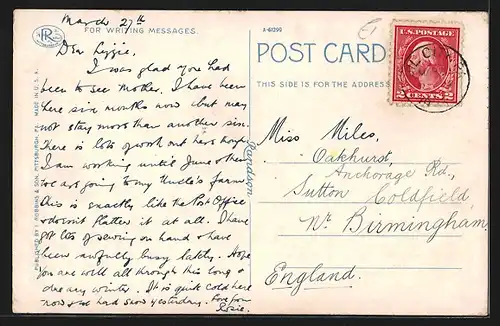 March 27th
FOR WRITING MESSAGES.
Dear Lizzie,
I was glad you had
been to see Mother. I have been
here six months now but may
not stay more than another six.
There is lots of work out here tho'
I am working until June & then
we are going to my Uncle's farm.
This is exactly like the Post Office
& doesn't flatter it at all. I have
got lots of sewing on hand & have
been awfully busy lately. Hope
you are well all through this long &
dreary winter. It is quite cold here
now & we had snow yesterday. Love from
Rosie.
PR
MADE IN U.S.A.
PUBLISHED BY I. ROBBINS & SON, PITTSBURGH, PA.
A-61290
POST CARD
THIS SIDE IS FOR THE ADDRESS
U.S. POSTAGE
2 CENTS 2
Miss Miles,
Oakhurst,
Anchorage Rd.,
Sutton
Coldfield,
Nr Birmingham,
England.